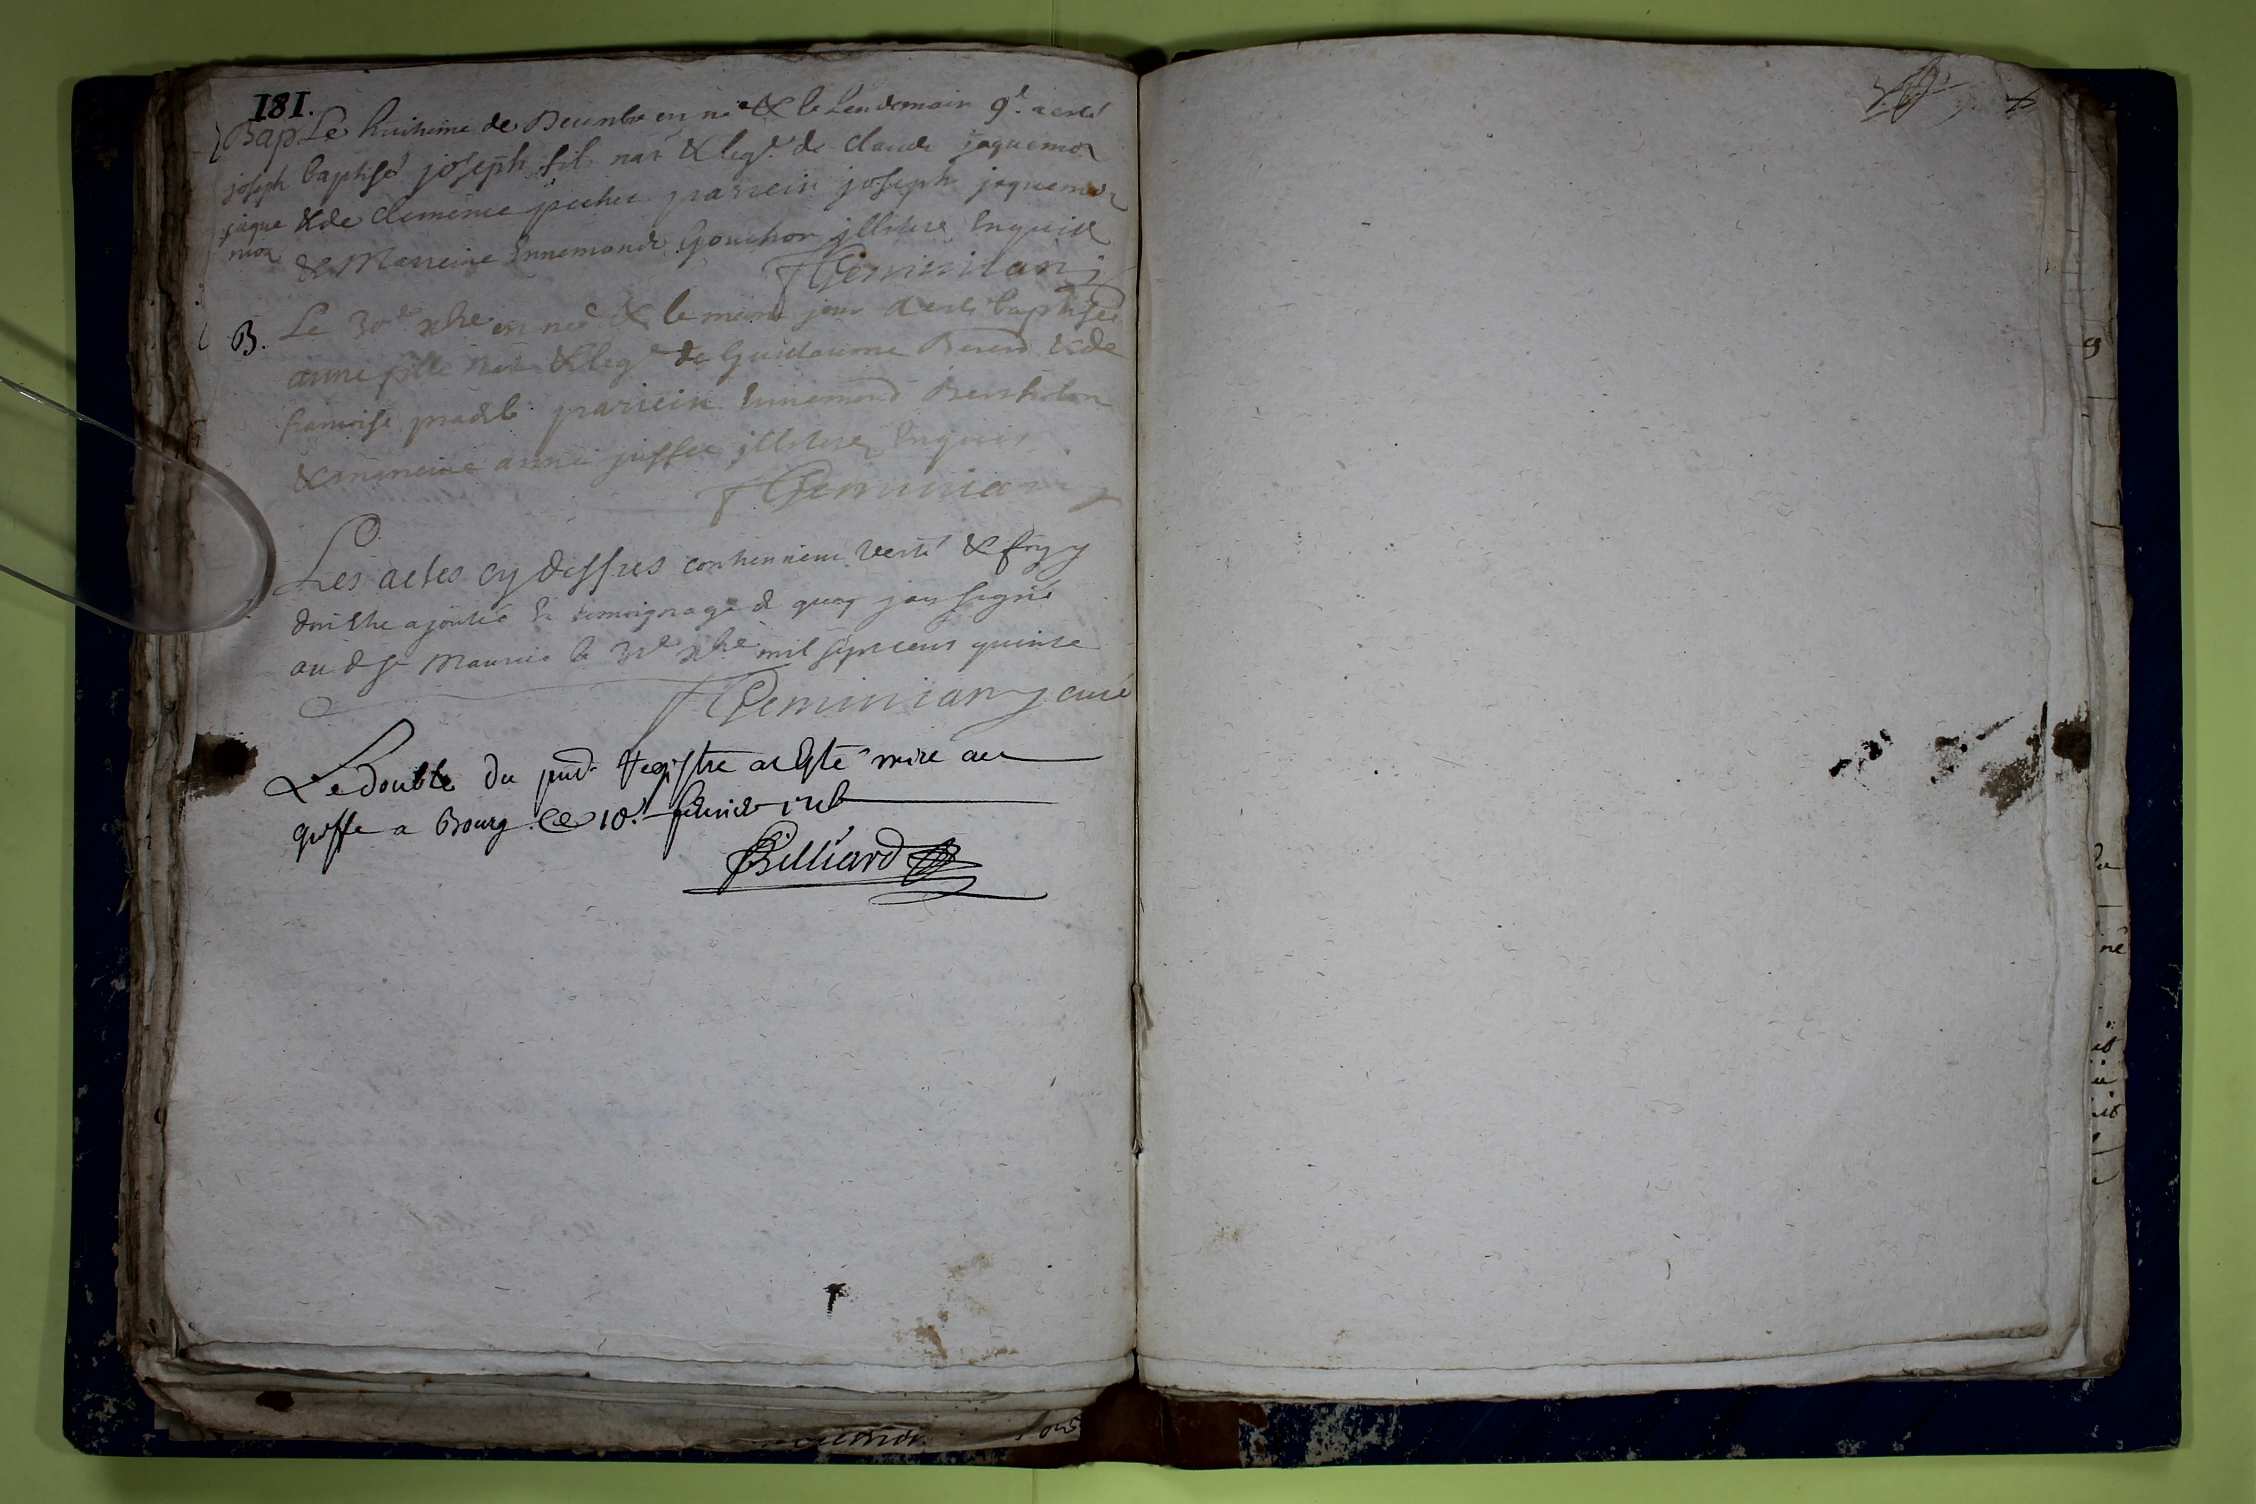 181.
Bap Le huitieme de Decembre est né & le Lendemain 9e. a esté
joseph baptisé joseph fils nat & legt. de claude jaquemor
jaque & de clemence pochet parrein joseph jaquemor
mor & Marreine Ennemonde Gouchon illiteré Enquis
F Geminiany
B. Le 30e xbre est neé & le meme jour a esté baptisée
anne fille nat & legt de Guillaume Bererd & de
francoise prader parrein Ennemond Berthelon
& marreine anne illiteré Enquis
F Geminiany
Les actes cy dessus contiennent verité & foy y
doit etre ajoutée En temoignage de quoy jay signé
au d st Maurice le 31e xbre mil sept cens quinze
F Geminiany curé
Le double du pnt. Registre a Esté mis au
greffe a Bourg ce 18e. fevrier 1716
Billiard